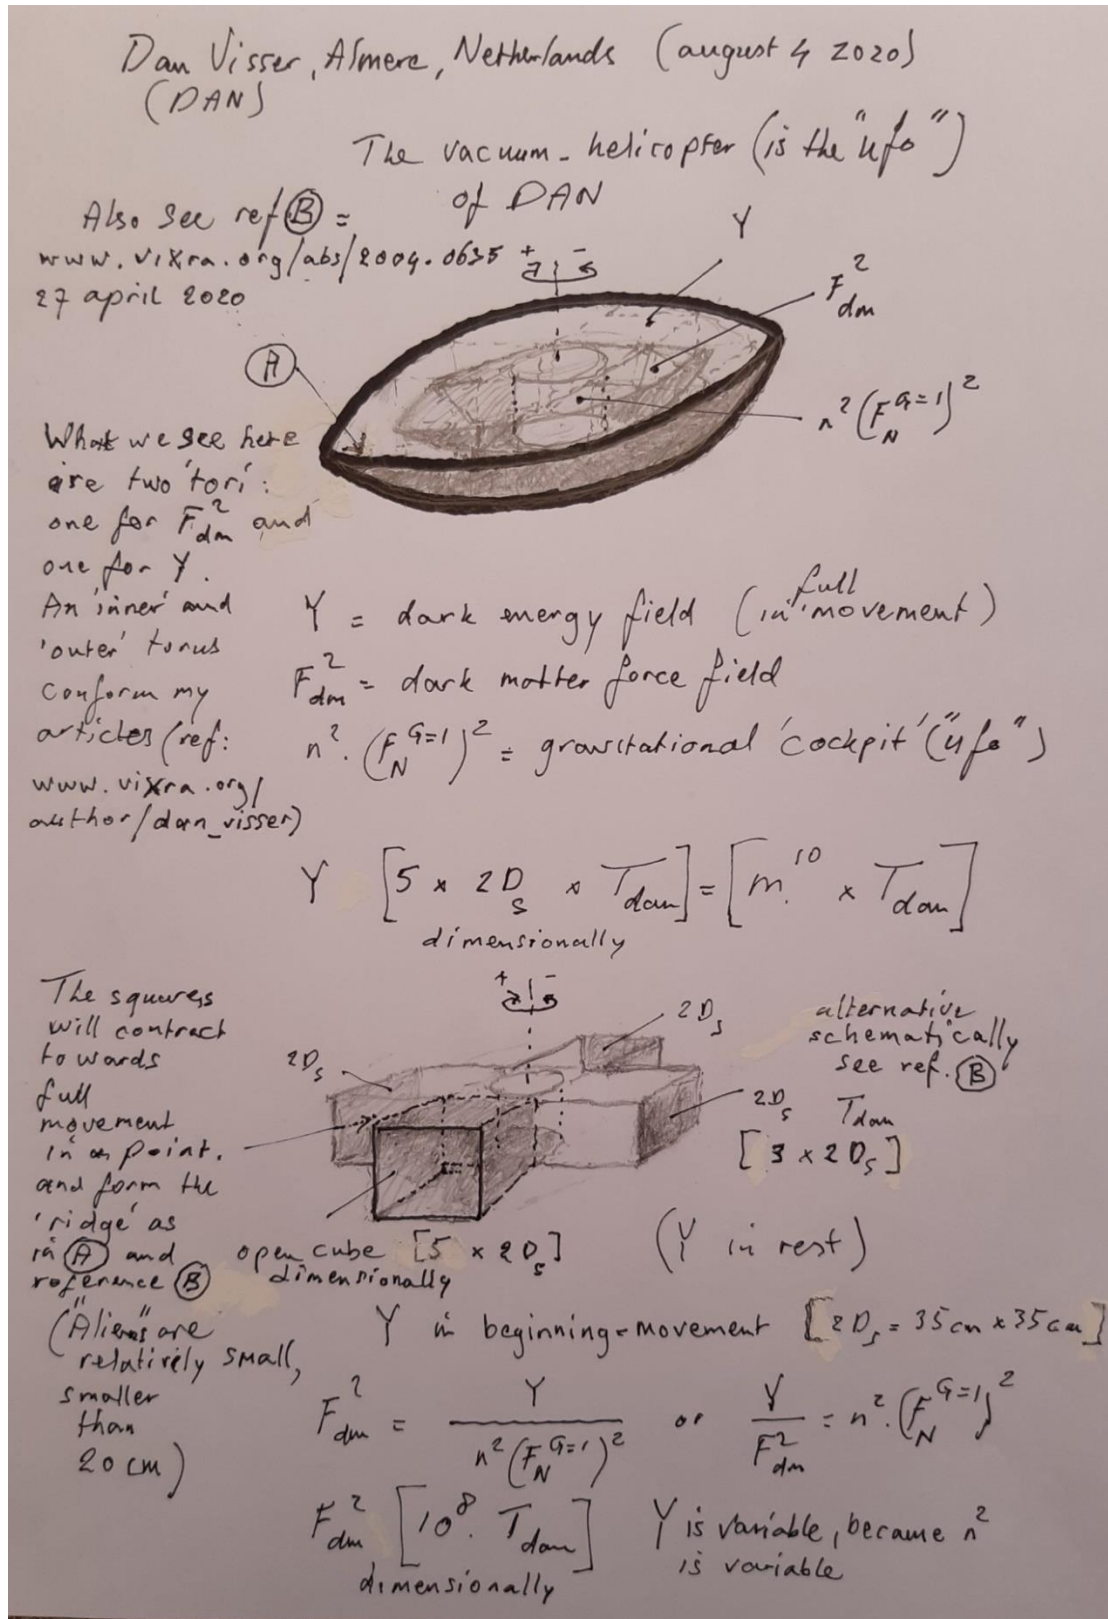 Dan Visser, Almere, Netherlands (august 4 2020)
(DAN)
The vacuum-helicopter (is the "ufo")
of DAN
Also see ref Ⓑ =
www.vixra.org/abs/2004.0635
27 april 2020
+ -
Y
F_dm^2
n^2 (F_N^{G=1})^2
Ⓐ
What we see here
are two 'tori':
one for F_dm^2 and
one for Y.
An 'inner' and
'outer' torus
conform my
articles (ref:
www.vixra.org/
author/dan_visser)
Y = dark energy field (in full movement)
F_dm^2 = dark matter force field
n^2 . (F_N^{G=1})^2 = gravitational 'cockpit' ("ufo")
Y [5 x 2D_s x T_dan] = [m^10 x T_dan]
dimensionally
The squares
will contract
towards
full
movement
in a point.
and form the
'ridge' as
in Ⓐ and
reference Ⓑ
("Aliens" are
relatively small,
smaller
than
20 cm)
+ -
2D_s
2D_s
2D_s
alternative
schematically
see ref. Ⓑ
T_dan
[3 x 2D_s]
open cube [5 x 2D_s]
dimensionally
(Y in rest)
Y in beginning-movement [2D_s = 35 cm x 35 cm]
F_dm^2 = Y / n^2 (F_N^{G=1})^2 or Y / F_dm^2 = n^2 . (F_N^{G=1})^2
F_dm^2 [10^8 . T_dan]
dimensionally
Y is variable, became n^2
is variable